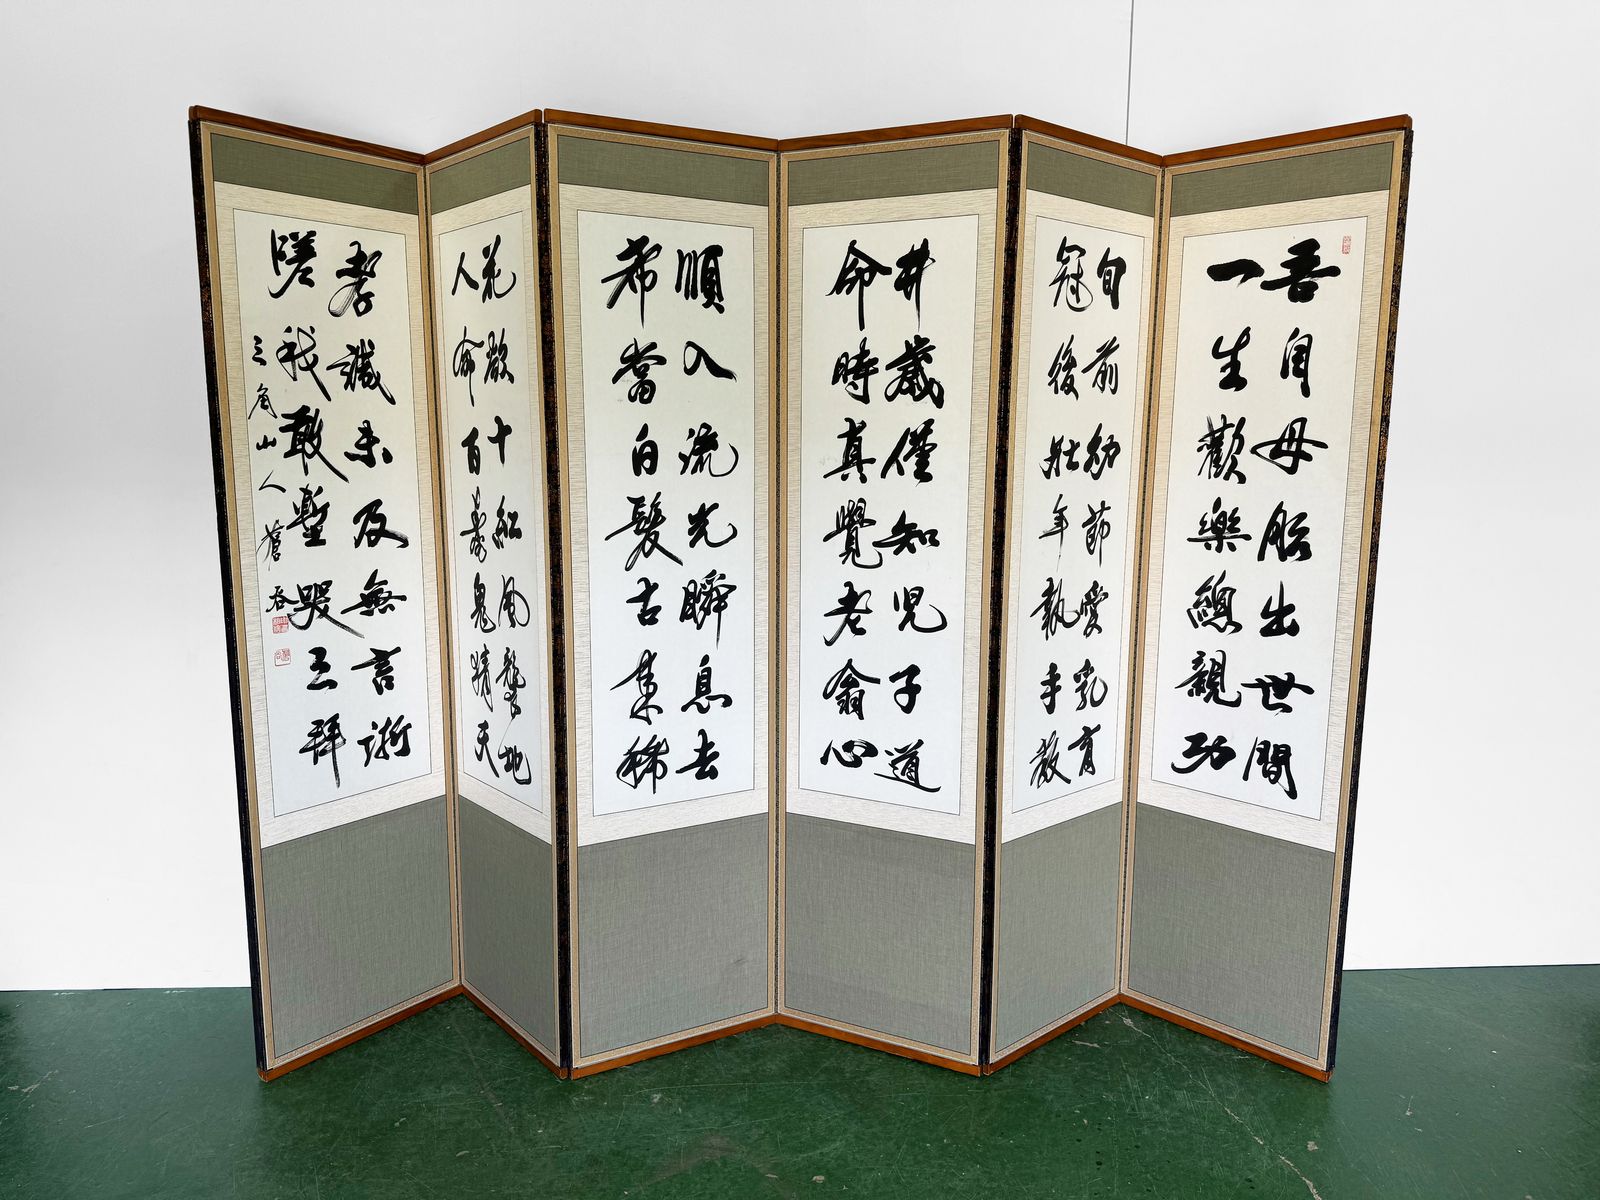 吾自母胎出世間
一生歡樂總親功
旬前幼節愛乳育
冠後壯年執手教
井歲僅知児子道
命時真覺老翁心
順入流光瞬息去
希當白髮古來稀
花欲十紅風聲地
人命百壽鬼精天
孝誠未及無言逝
嗟我敢塹哭三拜
三角山人